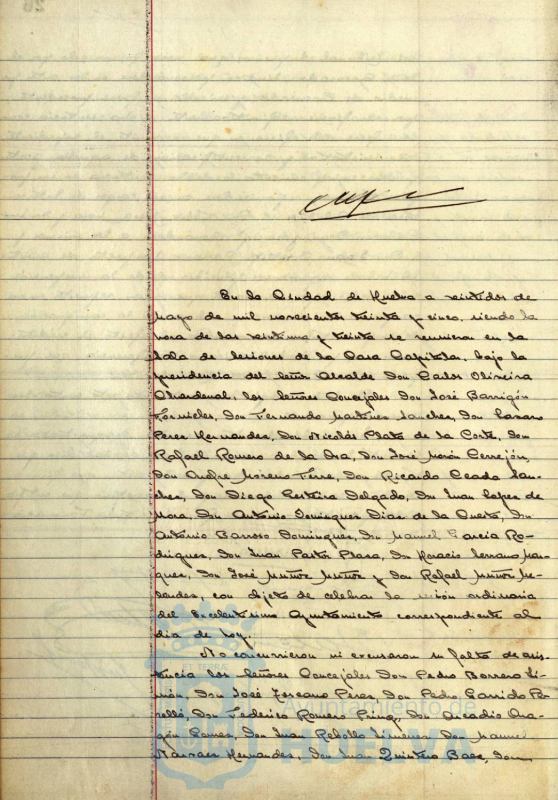 En la Ciudad de Huelva a veintidos de
Mayo de mil novecientos treinta y cinco, siendo la
hora de las veintiuna y treinta se reunieron en la
Sala de Sesiones de la Casa Capitular, bajo la
presidencia del Señor Alcalde Don Carlos Oliveira
Chardenal, los Señores Concejales Don José Barrigón
Fornieles, Don Fernando Martinez Sanchez, Don Lazaro
Perez Hernandez, Don Nicolás Plata de la Corte, Don
Rafael Romero de la Osa, Don José Morón Cerrejón,
Don Andre Moreno Ferre, Don Ricardo Ceada San-
chez, Don Diego Delgado, Don Juan Lopez de
Mora, Don Antonio Dominguez Diaz de la Cueta, Don
Antonio Barroso Dominguez, Don Manuel Garcia Ro-
driguez, Don Juan Pastor Plaza, Don Horacio Serrano Mar-
quez, Don José Muñoz Muñoz y Don Rafael Muñoz Me-
lendez, con objeto de celebrar la sesión ordinaria
del Excelentisimo Ayuntamiento correspondiente al
dia de hoy.
No concurrieron ni excusaron su falta de asis-
tencia los Señores Concejales Don Pedro Borrero Li-
món, Don José Toscano Perez, Don Pedro Garrido Pe-
relló, Don Federico Romero Don Arcadio Ara-
gón Gomez, Don Juan Rebollo Jimenez Don Manuel
Narvaez Hernandez, Don Juan Quintero Baez, Don
ET TERRÆ
Ayuntamiento de
HUELVA